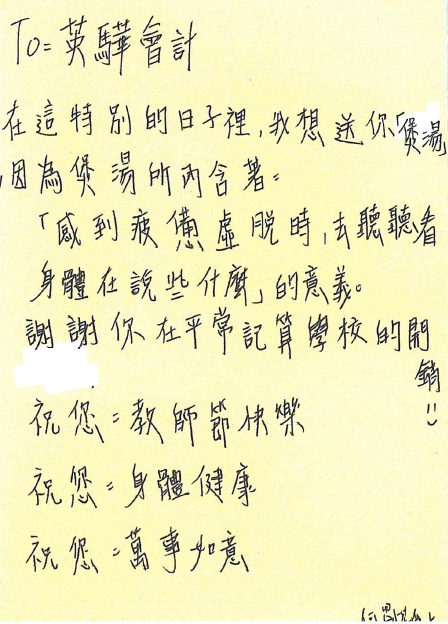 To=英驊會計
在這特別的日子裡,我想送你「煲湯
,因為煲湯所內含著=
「感到疲憊虛脫時,去聽聽看
身體在說些什麼」的意義。
謝謝你在平常記算學校的開
銷!!
祝您=教師節快樂
祝您=身體健康
祝您=萬事如意